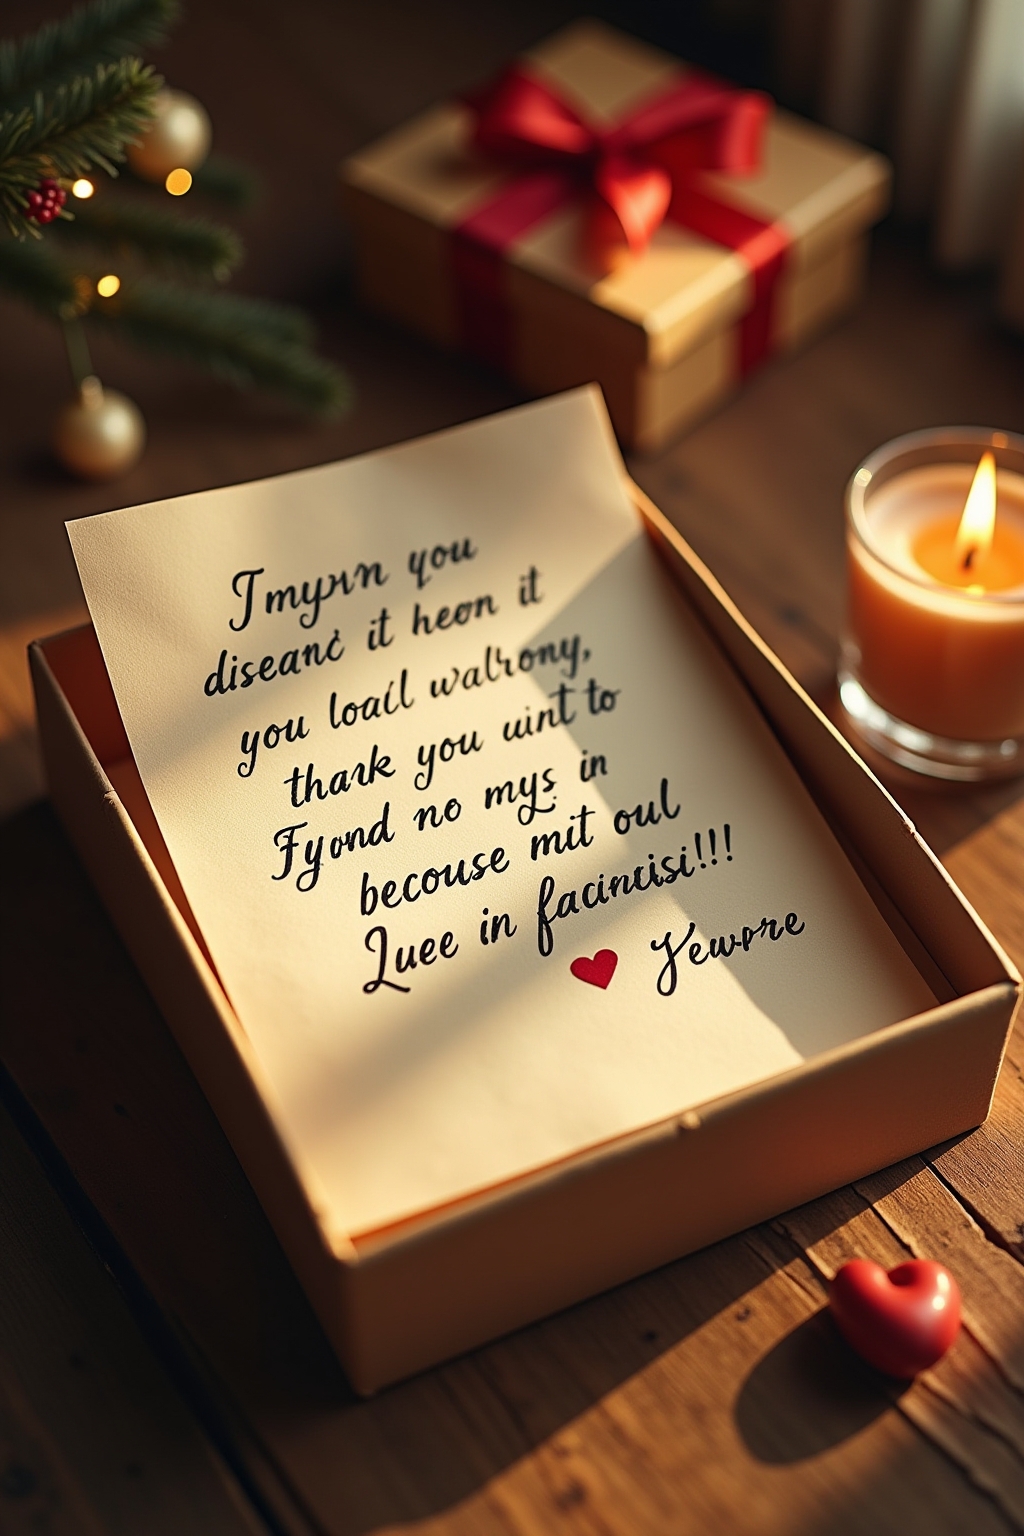 Tmyxn you
diseanc it heon it
you loail walrony,
thaık you uint to
Fyond no mys in
becouse mit oul
Luee in facincisi!!!
Yewore